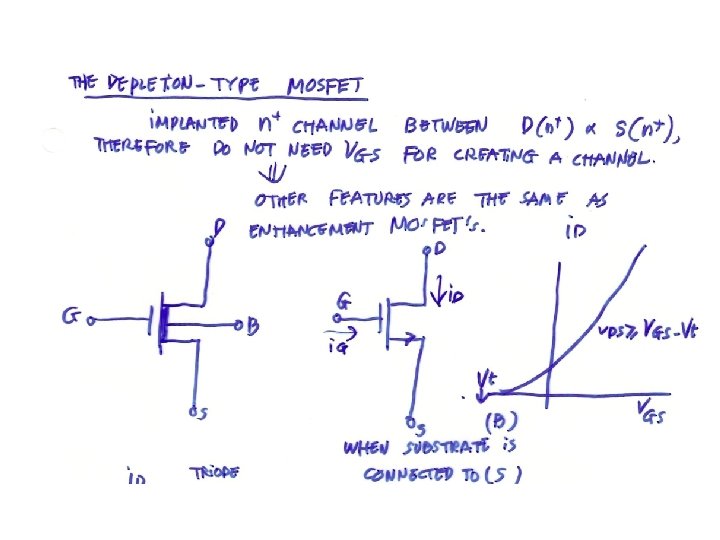 THE DEPLETION-TYPE MOSFET
IMPLANTED n+ CHANNEL BETWEEN D(n+) & S(n+),
THEREFORE DO NOT NEED VGS FOR CREATING A CHANNEL.
⇓
OTHER FEATURES ARE THE SAME AS
ENHANCEMENT MOSFET's.
D
G
B
S
D
↓iD
G
iG
S
iD
VDS ≥ VGS-Vt
Vt
VGS
(B)
WHEN SUBSTRATE iS
CONNECTED TO (S)
iD TRiODE